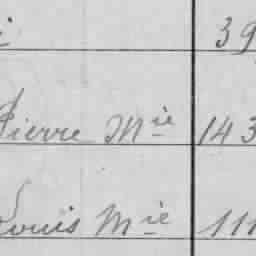 39
Pierre Mie 143
Louis Mie 111